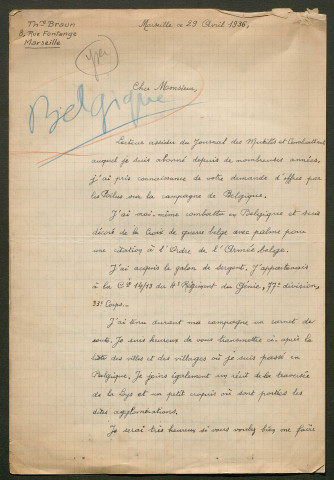 Thre Braun
8, Rue Fontange
Marseille
Marseille ce 29 Avril 1936,
Belgique
Cher Monsieur,
Lecteur assidu du Journal des Mutilés et Combattants
auquel je suis abonné depuis de nombreuses années,
j'ai pris connaissance de votre demande d'offres par
les Poilus sur la campagne de Belgique.
J'ai moi-même combattu en Belgique et suis
décoré de la Croix de guerre belge avec palme pour
une citation à l'Ordre de l'Armée belge.
J'ai acquis le galon de sergent. J'appartenais
à la Cie 14/13 du 4e Régiment du Génie, 77e division,
38e Corps.
J'ai tenu durant ma campagne un carnet de
route. Je suis heureux de vous transmettre ci-après la
liste des villes et des villages où je suis passé en
Belgique. Je joins également un récit de la traversée
de la Lys et un petit croquis où sont portées les
dites agglomérations.
Je serai très heureux si vous voulez bien me faire